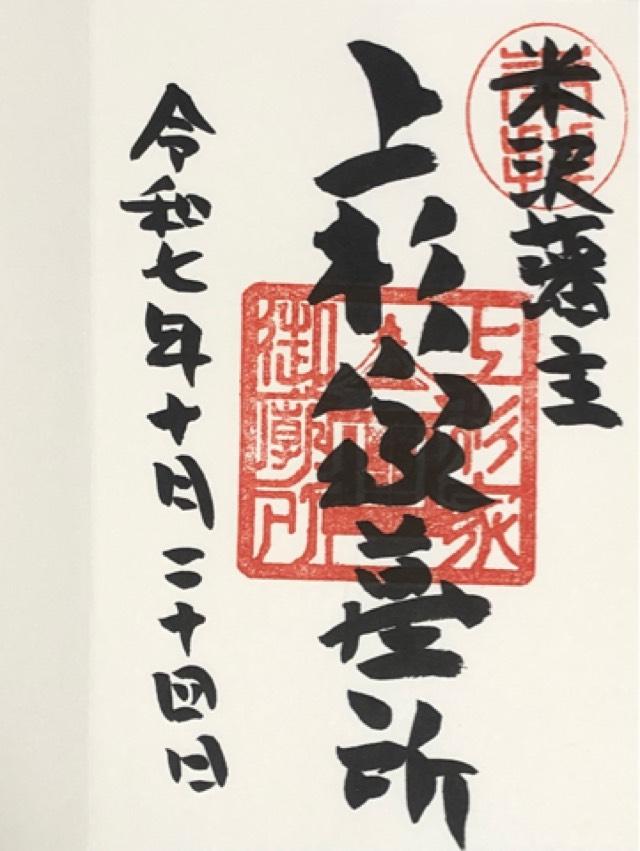 米沢藩主
上杉家墓所
上杉家
御廟所
令和七年十月二十四日